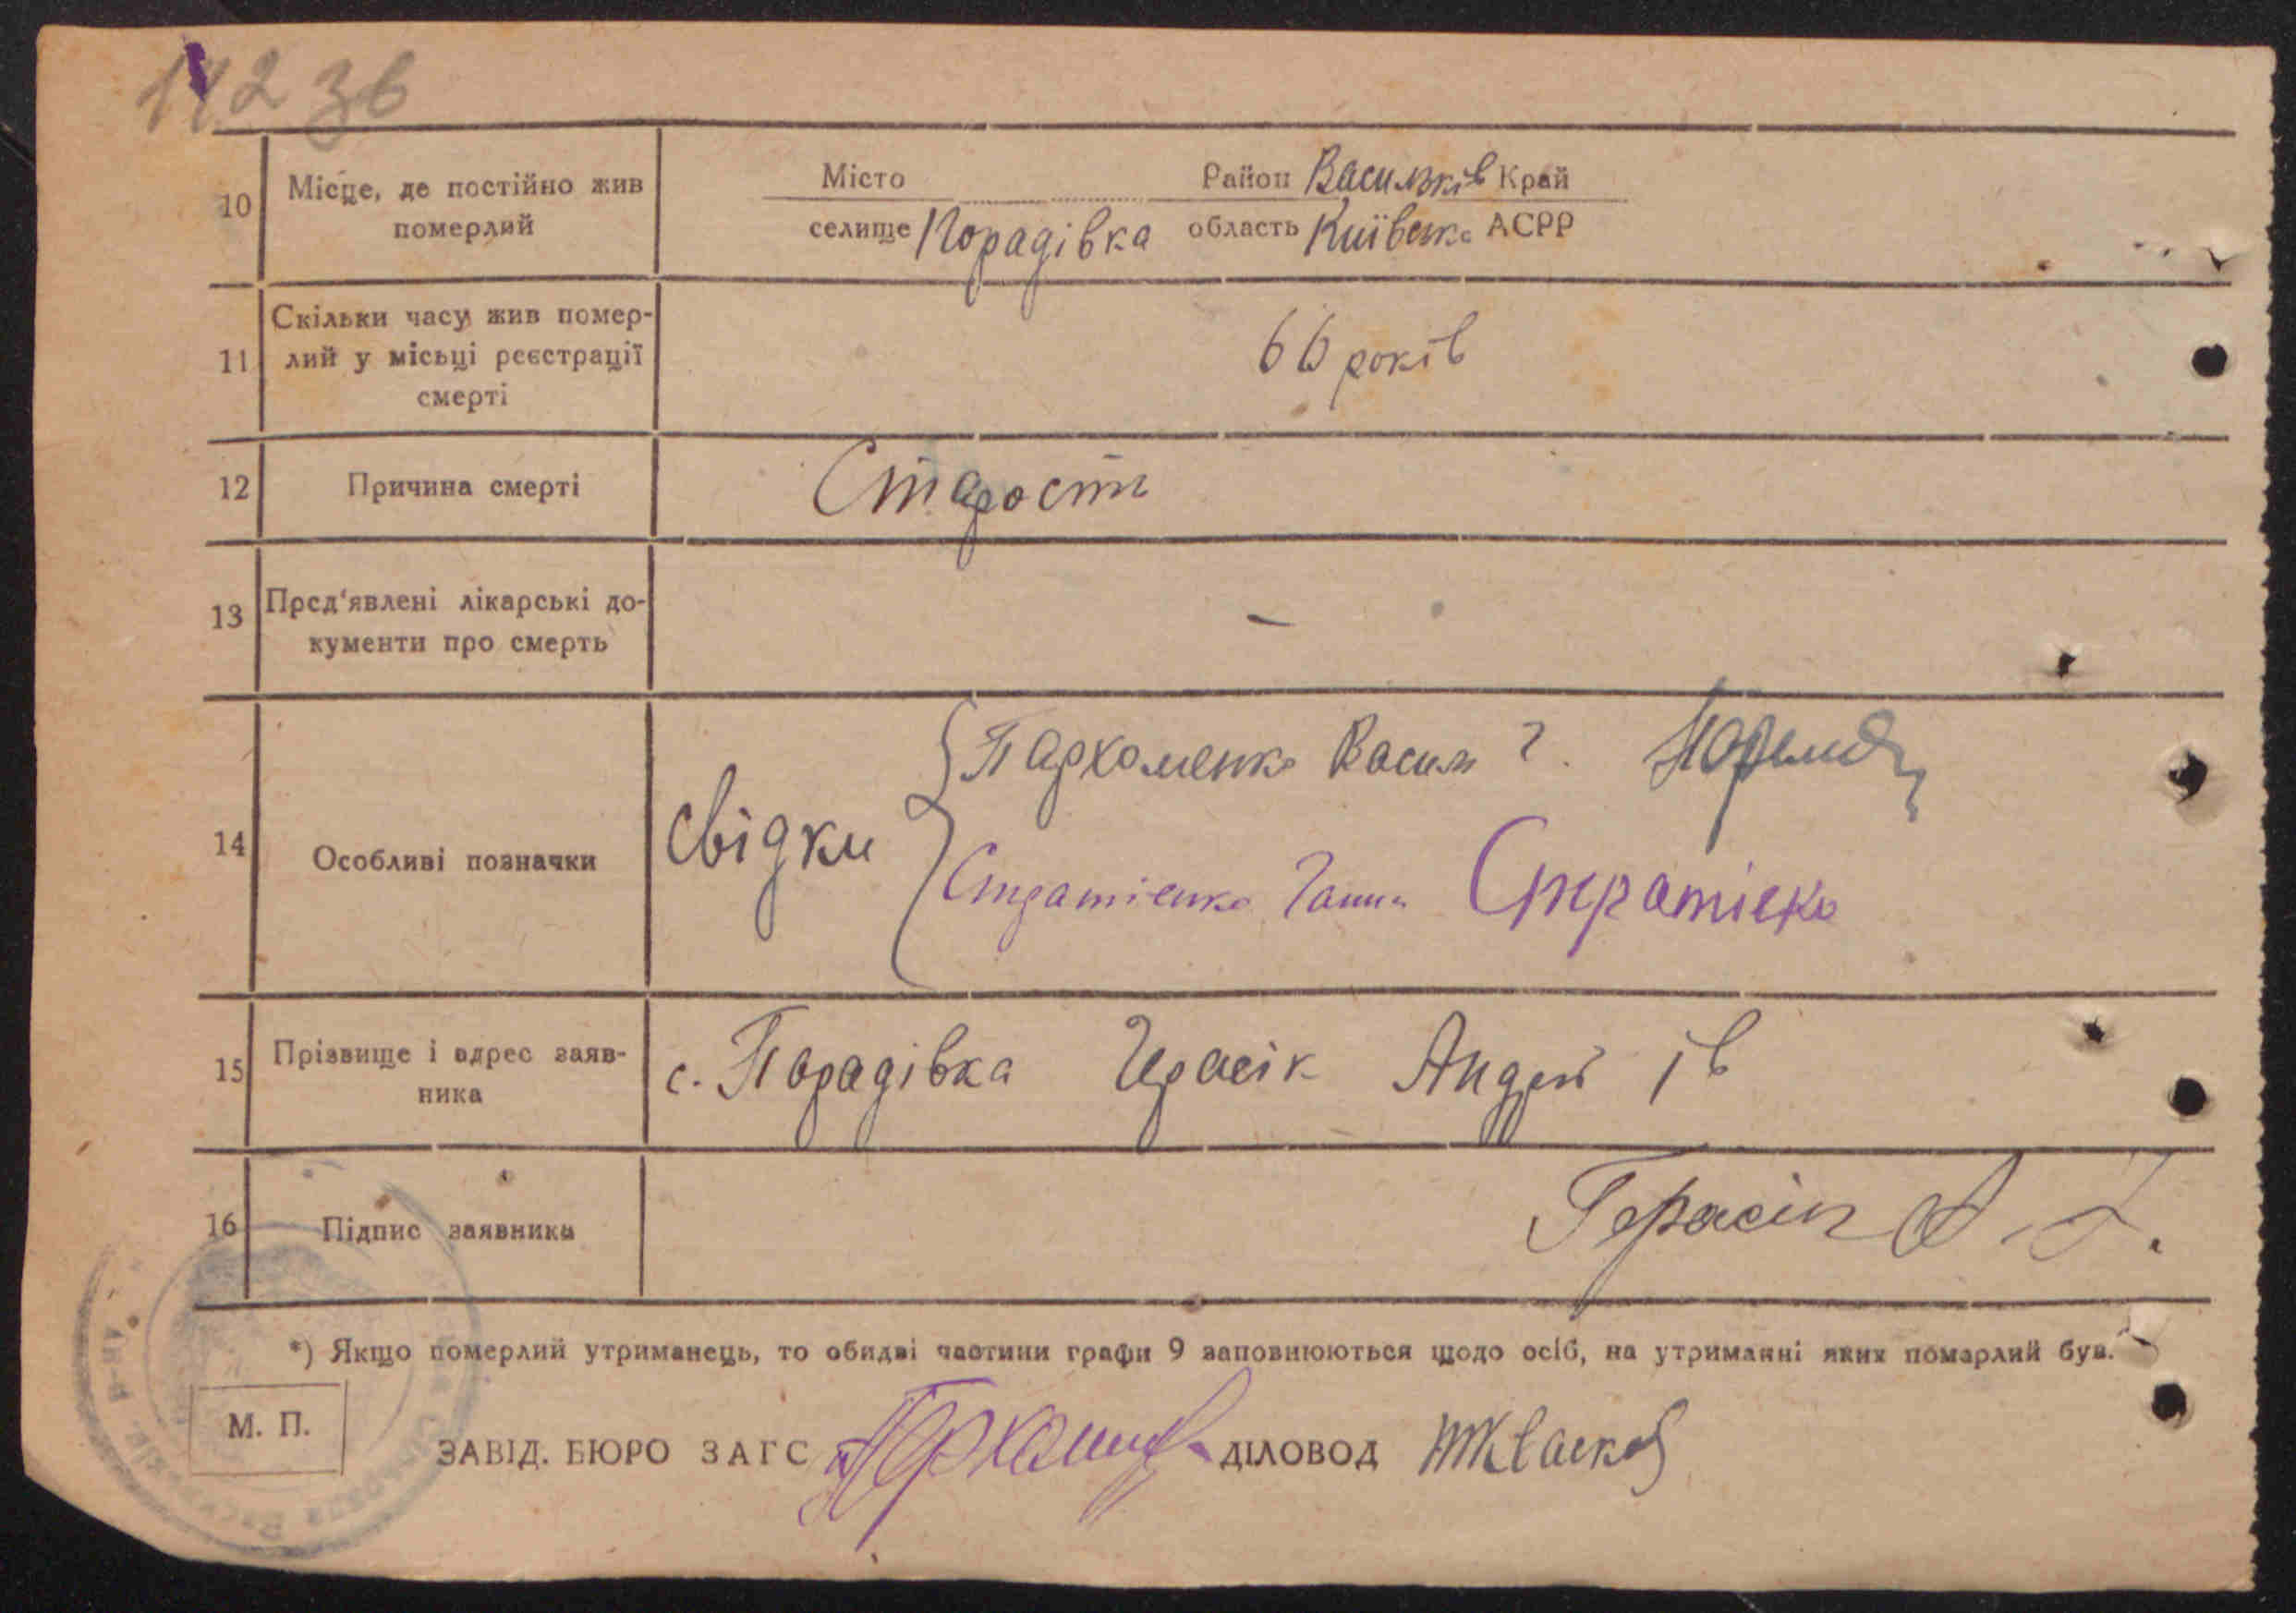 142 зв
10 Місце, де постійно жив померлий
Місто Район Васильків Край
селище Порадівка область Київська АСРР
11 Скільки часу жив помер-
лий у місьці реєстрації
смерті
66 років
12 Причина смерті Старость
13 Пред'явлені лікарські до-
кументи про смерть –
14 Особливі позначки
свідки
Пархоменко Васил Г.
Стратієнко Ганна Стратіеко
15 Прізвище і адрес заяв-
ника
с. Парадівка Герасік Андрій Ів
16 Підпис заявника Герасік А.
*) Якщо померлий утриманець, то обидві частини графи 9 заповнюються щодо осіб, на утриманні яких померлий був.
М. П.
ЗАВІД. БЮРО ЗАГС ДІЛОВОД